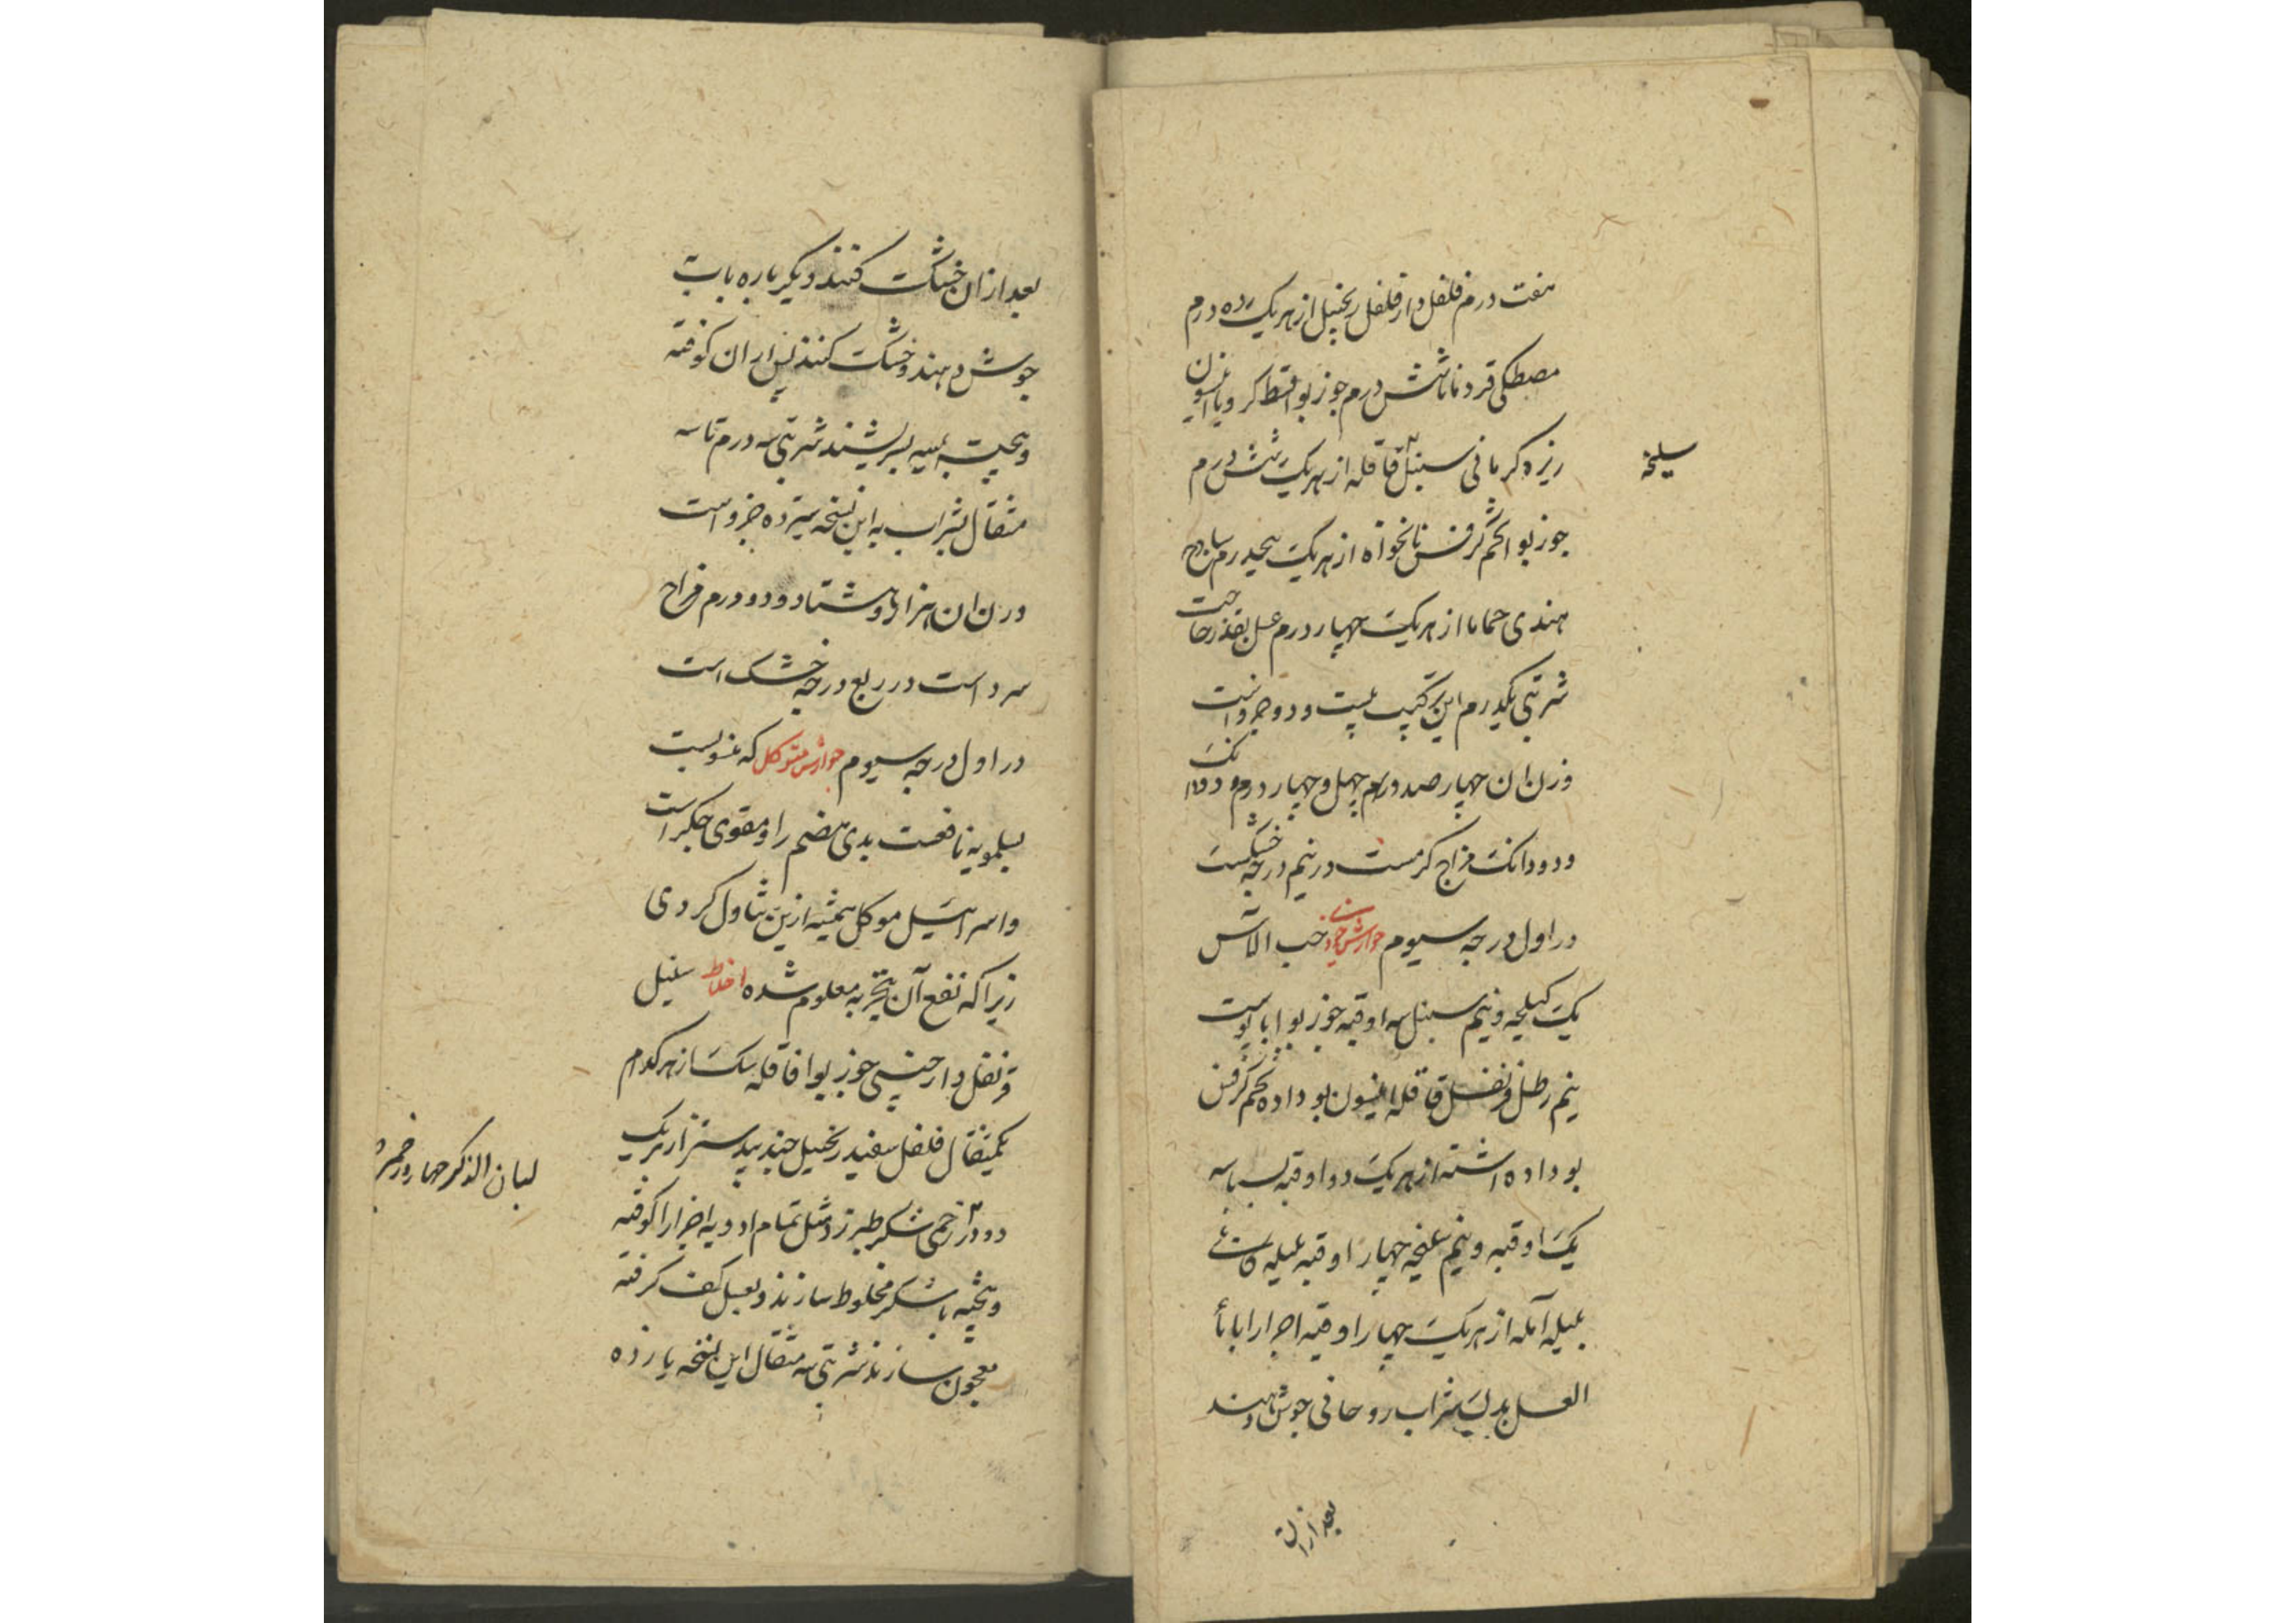 هفت درم فلفل دارفلفل زنجبیل از هر یک ده درم
مصطکی قردمانا شش درم جوزبوا قسط کرویا انیسون
زیره کرمانی سنبل قاقله از هر یک شش درم
سلیخه
جوزبوا تخم کرفس نانخواه از هر یک پنجدرم ساذج
هندی حماما از هر یک چهار درم عسل بقدر حاجت
شربتی یکدرم این ترکیب بیست و دو جزو است
وزن ان چهار صد درم چهل و چهار درم دانک
و دو دانک مزاج کرمست در نیم درجه خشکست
در اول درجه سیوم جوارش حب الآس
یک کیلجه و نیم سنبل سه اوقیه جوزبوا با پوست
نیم رطل قرنفل قاقله انیسون بو داده تخم کرفس
بو داده اشنه از هر یک دو اوقیه بسباسه
یک اوقیه و نیم سلیخه چهار اوقیه هلیله کابلی
بلیله آمله از هر یک چهار اوقیه اجزا را با ماء
العسل بدل شراب روحانی جوش دهند
بعد ازان
بعد ازان خشک کنند دیکر باره باب به
جوش دهند و خشک کنند پس ازان کوفته
و بیخته بمیبه بسریشند شربتی سه درم تا سه
مثقال بشراب به این نسخه سیزده جزو است
وزن ان هزار و هشتاد و دو درم مزاج
سرد است در ربع درجه خشک است
در اول درجه سیوم جوارش متوکل که منسوبست
بسلمویه نافعست بدی هضم را و مقوی جکر است
و اسرائیل موکل همیشه ازین تناول کردی
زیرا که نفع آن بتجربه معلوم شده اخلاط سنبل
قرنفل دارچینی جوزبوا قاقله سک از هر کدام
یکمثقال فلفل سفید زنجبیل جندبیدستر از هر یک
لبان الذکر چهار درم
دو درخمی شکر طبرزد مثل تمام ادویه اجزا را کوفته
و بیخته با شکر مخلوط سازند و بعسل کف کرفته
معجون سازند شربتی سه مثقال این نسخه یازده